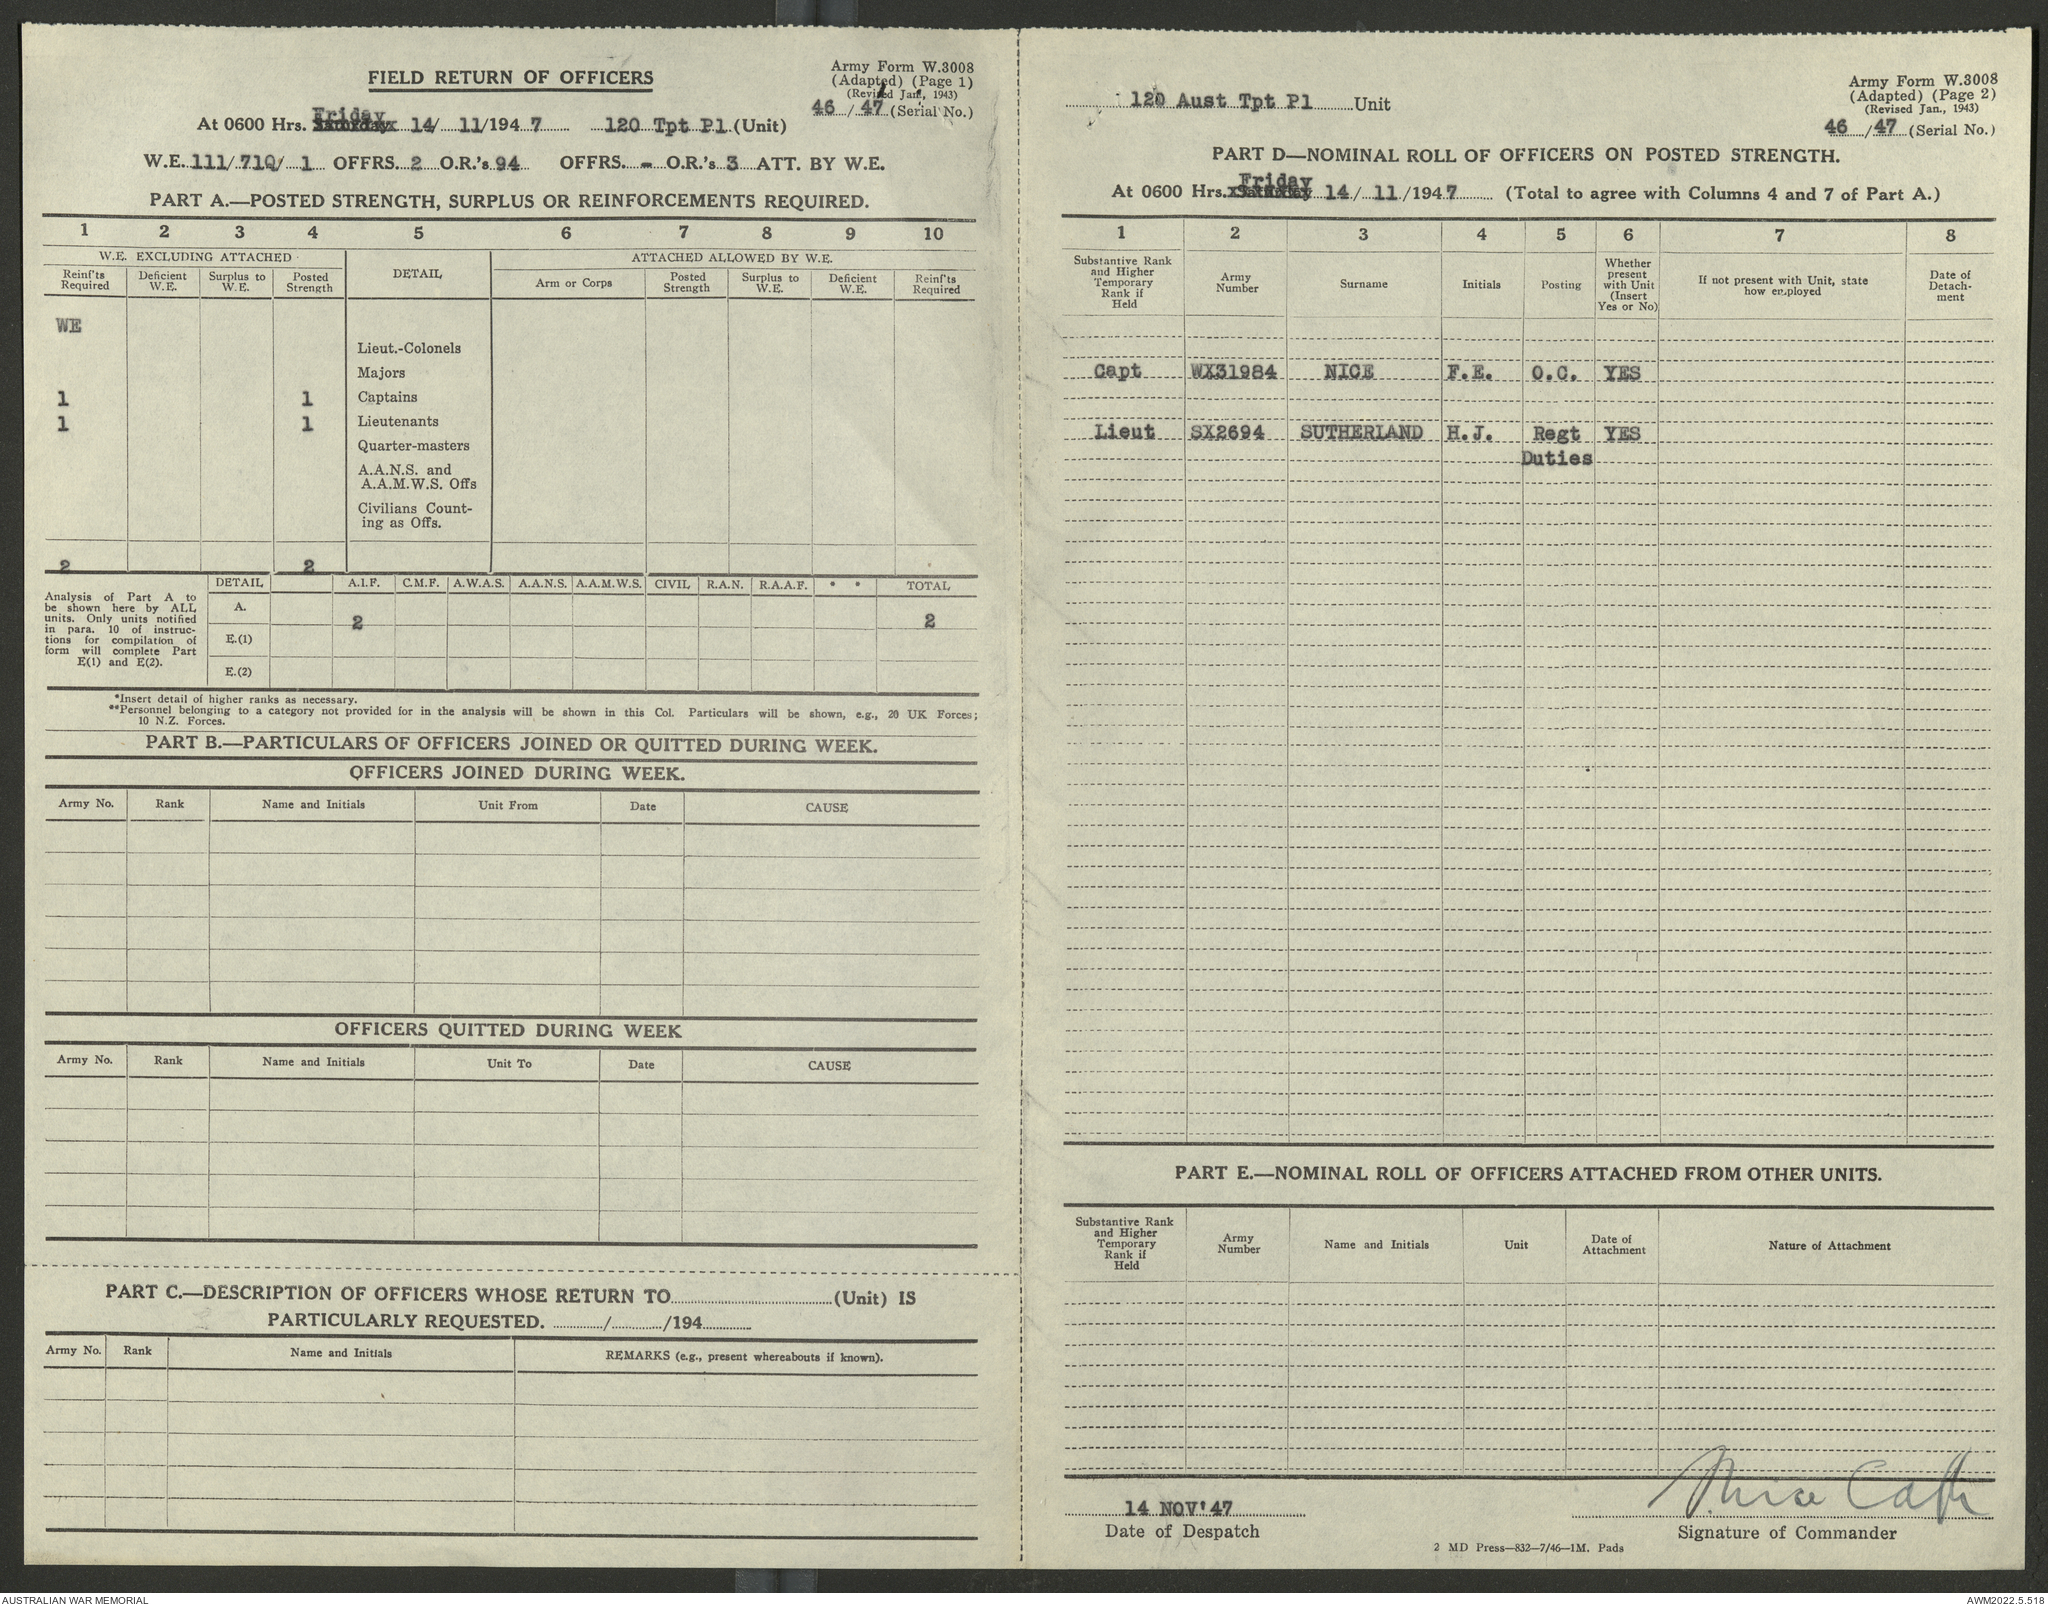 FIELD RETURN OF OFFICERS
Army Form W.3008
(Adapted) (Page 1)
(Revised Jan., 1943)
46 / 47 (Serial No.)
Friday
At 0600 Hrs. Saturday 14/ 11/194 7 120 Tpt Pl (Unit)
W.E. 111/ 710/ 1 OFFRS. 2 O.R.'s 94 OFFRS. - O.R.'s 3 ATT. BY W.E.
PART A.—POSTED STRENGTH, SURPLUS OR REINFORCEMENTS REQUIRED.
1 2 3 4 5 6 7 8 9 10
W.E. EXCLUDING ATTACHED DETAIL ATTACHED ALLOWED BY W.E.
Reinf'ts Required Deficient W.E. Surplus to W.E. Posted Strength Arm or Corps Posted Strength Surplus to W.E. Deficient W.E. Reinf'ts Required
WE
Lieut.-Colonels
Majors
1 1 Captains
1 1 Lieutenants
Quarter-masters
A.A.N.S. and
A.A.M.W.S. Offs
Civilians Count-
ing as Offs.
2 2
DETAIL A.I.F. C.M.F. A.W.A.S. A.A.N.S. A.A.M.W.S. CIVIL R.A.N. R.A.A.F. * * TOTAL
Analysis of Part A to
be shown here by ALL
units. Only units notified
in para. 10 of instruc-
tions for compilation of
form will complete Part
E(1) and E(2).
A. 2 2
E.(1)
E.(2)
*Insert detail of higher ranks as necessary.
**Personnel belonging to a category not provided for in the analysis will be shown in this Col. Particulars will be shown, e.g., 20 UK Forces;
10 N.Z. Forces.
PART B.—PARTICULARS OF OFFICERS JOINED OR QUITTED DURING WEEK.
OFFICERS JOINED DURING WEEK.
Army No. Rank Name and Initials Unit From Date CAUSE
OFFICERS QUITTED DURING WEEK
Army No. Rank Name and Initials Unit To Date CAUSE
PART C.—DESCRIPTION OF OFFICERS WHOSE RETURN TO (Unit) IS
PARTICULARLY REQUESTED. / /194
Army No. Rank Name and Initials REMARKS (e.g., present whereabouts if known).
120 Aust Tpt Pl Unit
Army Form W.3008
(Adapted) (Page 2)
(Revised Jan., 1943)
46 / 47 (Serial No.)
PART D—NOMINAL ROLL OF OFFICERS ON POSTED STRENGTH.
Friday
At 0600 Hrs. Saturday 14/ 11/1947 (Total to agree with Columns 4 and 7 of Part A.)
1 2 3 4 5 6 7 8
Substantive Rank and Higher Temporary Rank if Held Army Number Surname Initials Posting Whether present with Unit (Insert Yes or No) If not present with Unit, state how employed Date of Detach-ment
Capt WX31984 NICE F.E. O.C. YES
Lieut SX2694 SUTHERLAND H.J. Regt YES
Duties
PART E.—NOMINAL ROLL OF OFFICERS ATTACHED FROM OTHER UNITS.
Substantive Rank and Higher Temporary Rank if Held Army Number Name and Initials Unit Date of Attachment Nature of Attachment
14 NOV'47 Nice Capt
Date of Despatch Signature of Commander
2 MD Press—832—7/46—1M. Pads
AUSTRALIAN WAR MEMORIAL AWM2022.5.518